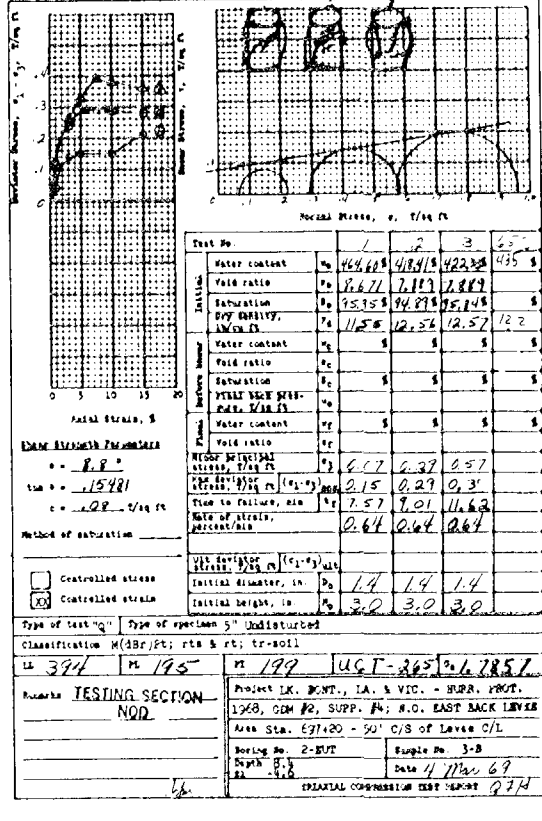 Normal Stress, σ, T/sq ft
0 5 10 15 20
Axial Strain, %
Shear Strength Parameters
φ = 8.8 °
tan φ = .15481
c = .08 T/sq ft
Method of saturation
Controlled stress
Controlled strain
Test No. 1 2 3
Initial
Water content w₀ 464.60 % 418.41 % % 435 %
Void ratio e₀ 8.671 7.889 7.889
Saturation S₀ 95.95 % 94.89 % 95.84 %
Dry density, lb/cu ft 11.55 12.56 12.57 12.2
Before Shear
Water content % % % %
Void ratio
Saturation % % % %
Final back pressure, T/sq ft
Final
Water content % % % %
Void ratio
Minor principal stress, T/sq ft σ₃ 0.17 0.37 0.57
Max deviator stress, T/sq ft (σ₁-σ₃)max 0.15 0.29
Time to failure, min 7.57 9.01 11.62
Rate of strain, percent/min 0.64 0.64 0.64
Ult deviator stress, T/sq ft (σ₁-σ₃)ult
Initial diameter, in. D₀ 1.4 1.4 1.4
Initial height, in. H₀ 3.0 3.0 3.0
Type of test "Q" Type of specimen 5" Undisturbed
Classification rts & rt; tr-soil
LL 394 PL 195 PI 199 UCT-265 1.7857
Remarks TESTING SECTION
NOD
Project LK. PONT., LA. & VIC. - HURR. PROT.
1968, GDM #2, SUPP. #4; N.O. EAST BACK LEVEE
Area Sta. 697+20 - 50' C/S of Levee C/L
Boring No. 2-EUT Sample No. 3-B
Depth
El Date 4 Mar 69
TRIAXIAL COMPRESSION TEST REPORT